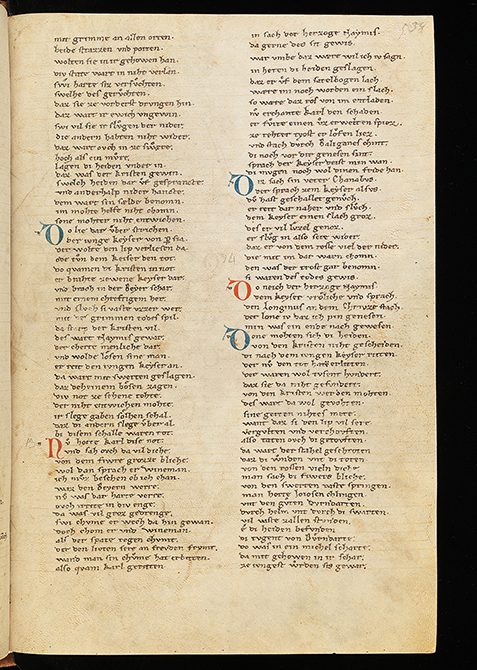 mit grimme an allen orten.
beide starzen vnd porten.
wolten sie in gehowen han.
div stîtte wart in niht verlan.
swi harte siz versvchten.
swelhe des gervchten.
daz sie ze vorderst drvngen hin.
daz wart ir ewich vngewin.
swi vil sie ir slvgen der nider.
die andern habten niht wider.
daz wart ovch in ze svwere.
hoch als ein mvre.
lagen di heiden vnder in.
daz was der kristen gewin.
swelch heiden dar vf gesprancte.
vnd anderhalp nider hancte.
dem wart sin sælde benomn.
im mohte helfe niht chomn.
sone mohter niht entwichen.
Do die dar vber strichen.
der ivnge keyser von
der wolde den lip verliesen da.
ode tvn dem keiser den tot.
do quamen di kristen in not.
er brahte zewene keyser dar.
vnd brach in der beyer schar.
mit einem chreftigem her.
vnd slvch si vaste vzzer wer.
mit des grimmen todes spil.
da starp der kristen vil.
des wart Naymis gewar.
der cherte menliche dar.
vnd wolde losen sine man.
er reit den ivngen keyser an.
da wart mit swerten geslagen.
daz deheinem bosen zagen.
div not ze sehene tohte.
der niht entwichen mohte.
ir slege gaben solhen schal.
daz di andern slege vber al.
bi disem schalle waren tot.
Nv horte Karl dise not.
vnd sah ovch da vil diche.
von dem fivre grozze bliche.
wol dan sprach er wineman.
ich mvz besehen ob ich chan.
waz den beyern werre.
nv was dar harte verre.
ovch irrete in div enge.
da was vil groz gedrenge.
swi chvme er wech da hin gewan.
doch chom er vnd wineman.
alse der spate regen chvmt.
der den livten sere an frevden frvmt.
wand man sin chvme hat erbiten.
also quam karl geriten
in sach der herzoge Naymis.
da gerne des sit gewis.
war vmbe daz were wil ich iv sagn.
in heten di heiden geslagen.
daz er vf dem satelbogen lach
were im noch worden ein slach.
so wære daz ros von im entladen.
nv erchonte Karl den schaden.
er fvrte einen vz erwelten spiez.
ze rehter tyost er lofen liez.
vnd stach dvrch Baligans chint.
di noch vor div genesen sint.
sprach der keyser weist man wan.
di mvgen noch wol einen frevde han.
Diz sach sin veter Chanabvs.
der sprach zem keyser alsvs.
dv hast geschallet genvch.
er reit dar naher vnd slvch.
dem keyser einen slach groz.
des er vil lvzel genoz.
er slvg in also sere wider.
daz er von dem rosse viel der nider.
die mit im dar warn chomn.
den was der trost gar benomn.
si waren des todes gewis.
Do neich der herzoge Naymis.
dem keyser vroliche vnd sprach.
der Longinus an dem chrivze stach.
der lone iv daz ich pin genesen.
min was ein ende nach gewesen
Done mohten sich di heiden.
von den kristen niht gescheiden.
di nach dem ivngen keyser riten.
der nv den tot hat erliten.
der waren wol tvsent hvndert.
daz sie da niht gesvndert.
von den kristen werden mohten.
des wart da wol gevohten.
sine gerten nihtes mere.
want daz si den lip vil sere.
vergvlten vnd verchovften.
also taten ovch di getovften.
da wart der stahel geschroten
daz di wnden vnt di toten
von den rossen vielen diche.
man sach di fivers bliche.
von den swerten vaste springen.
man horte Joiosen chlingen
vnt den gvten Dvrndarten.
dvrch helm vnt dvrch di swarten.
vil witte zallen stvnden.
e di heiden befvnden
di tvgent von Dvrndarte.
do was in ein michel scharte.
da mit gehowen in ir schar.
ze ivngest wrden sis gewar.